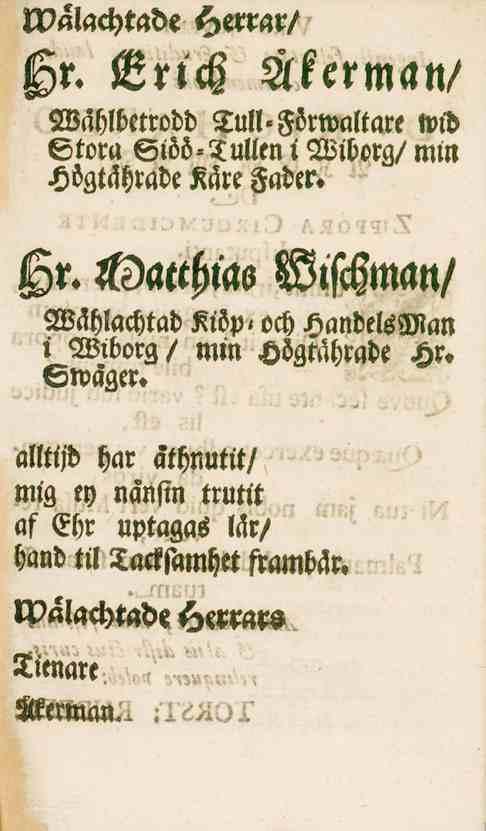 Wälachtade Herrar/
Hr. Erich Åkerman/
Wählbetrodd Tull-Förwaltare wid
Stora Siöö-Tullen i Wiborg/ min
Högtährade Käre Fader.
Hr. Matthias Wischman/
Wählachtad Kiöp- och HandelsMan
i Wiborg / min Högtährade Hr.
Swäger.
alltijd har åthnutit/
mig ey nånsin trutit
af Ehr uptagas lär/
hand til Tacksamhet frambär.
Wälachtade Herrars
Tienare
Åkerman.